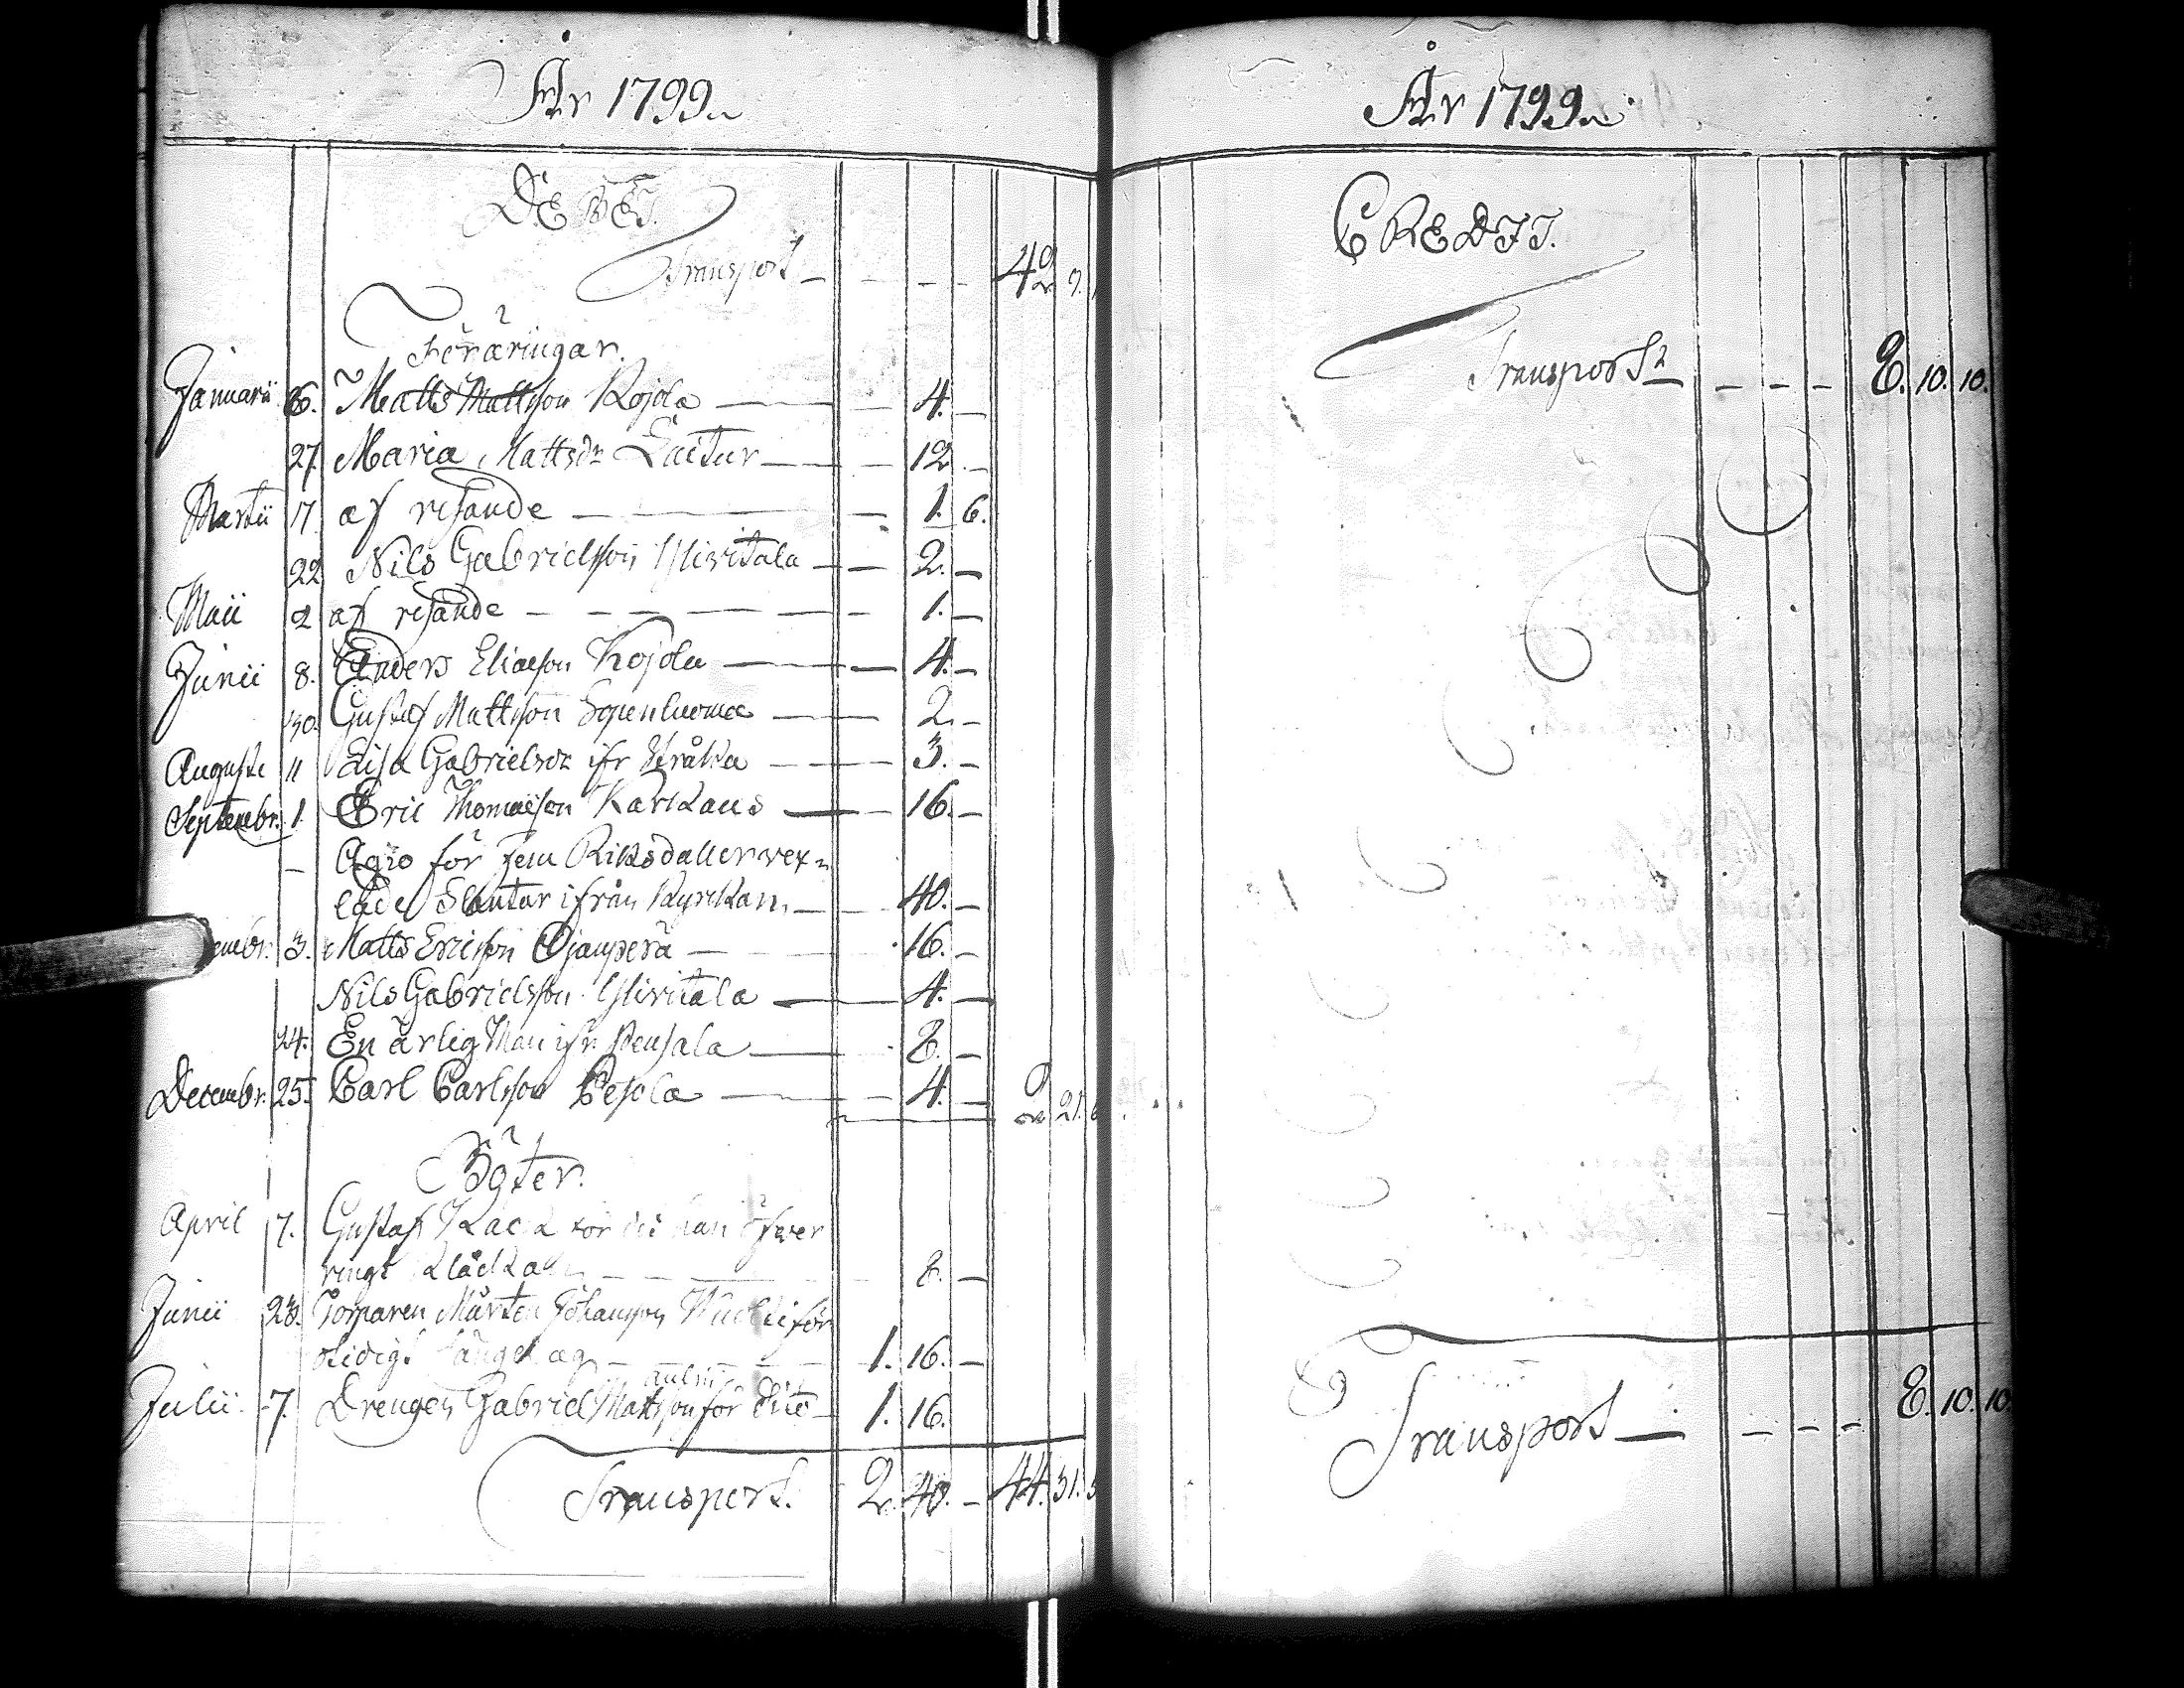 År 1799.
DEBET.
Transport - - - - 42 9.
Föräringar.
Januarii 6. Matts Mattsson Kojola - 4. -
27. Maria Mattsdr Laitur - 12. -
Martii 17 af resande - 1. 6.
22 Nils Gabrielsson Ylivitala - 2. -
Maii 2 af resande - 1. -
Junii 8. Anders Eliaeson Kojola - 4. -
30. Gustaf Mattsson Sopenluoma - 2. -
Augusti 11 Lisa Gabrielsdr ifr Stråka - 3. -
Septembr. 1. Eric Thomaeson Karlaus - 16. -
- Agio för fem Riksdaller vex=
lade Slantar ifrån Kyrckan - 40. -
embr. 3. Matts Ericsson Ojanperä - 16. -
Nils Gabrielsson Ylivitala - 4. -
24. En ärlig Man ifr. Pensala - 8. -
Decembr. 25. Carl Carlsson Pesola - 4. - 2 21. 6
Böter.
April 7. Gustaf för det han öfwer
ringt Kläckan - 8. -
Junii 23. Torparen Mårten Johansson för
otidigt sängelag - 1. 16. -
Julii 7. Drengen Gabriel Mattsson för dito - 1. 16.
Transport. 2. 40. - 44. 31. 3
År 1799.
CREDIT.
Transport - - - - 8. 10. 10.
Transport - - - - 8. 10. 10.